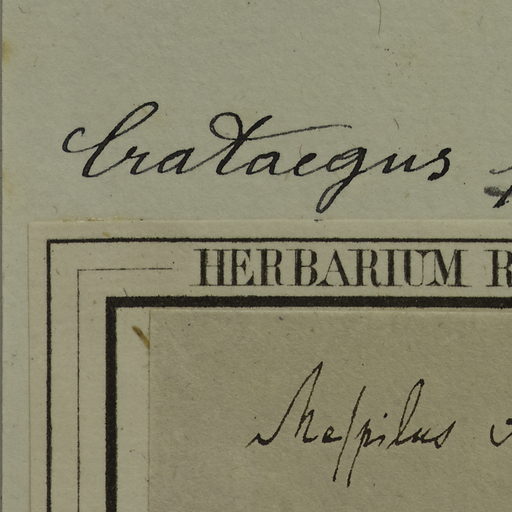 Crataegus
HERBARIUM R
Mespilus